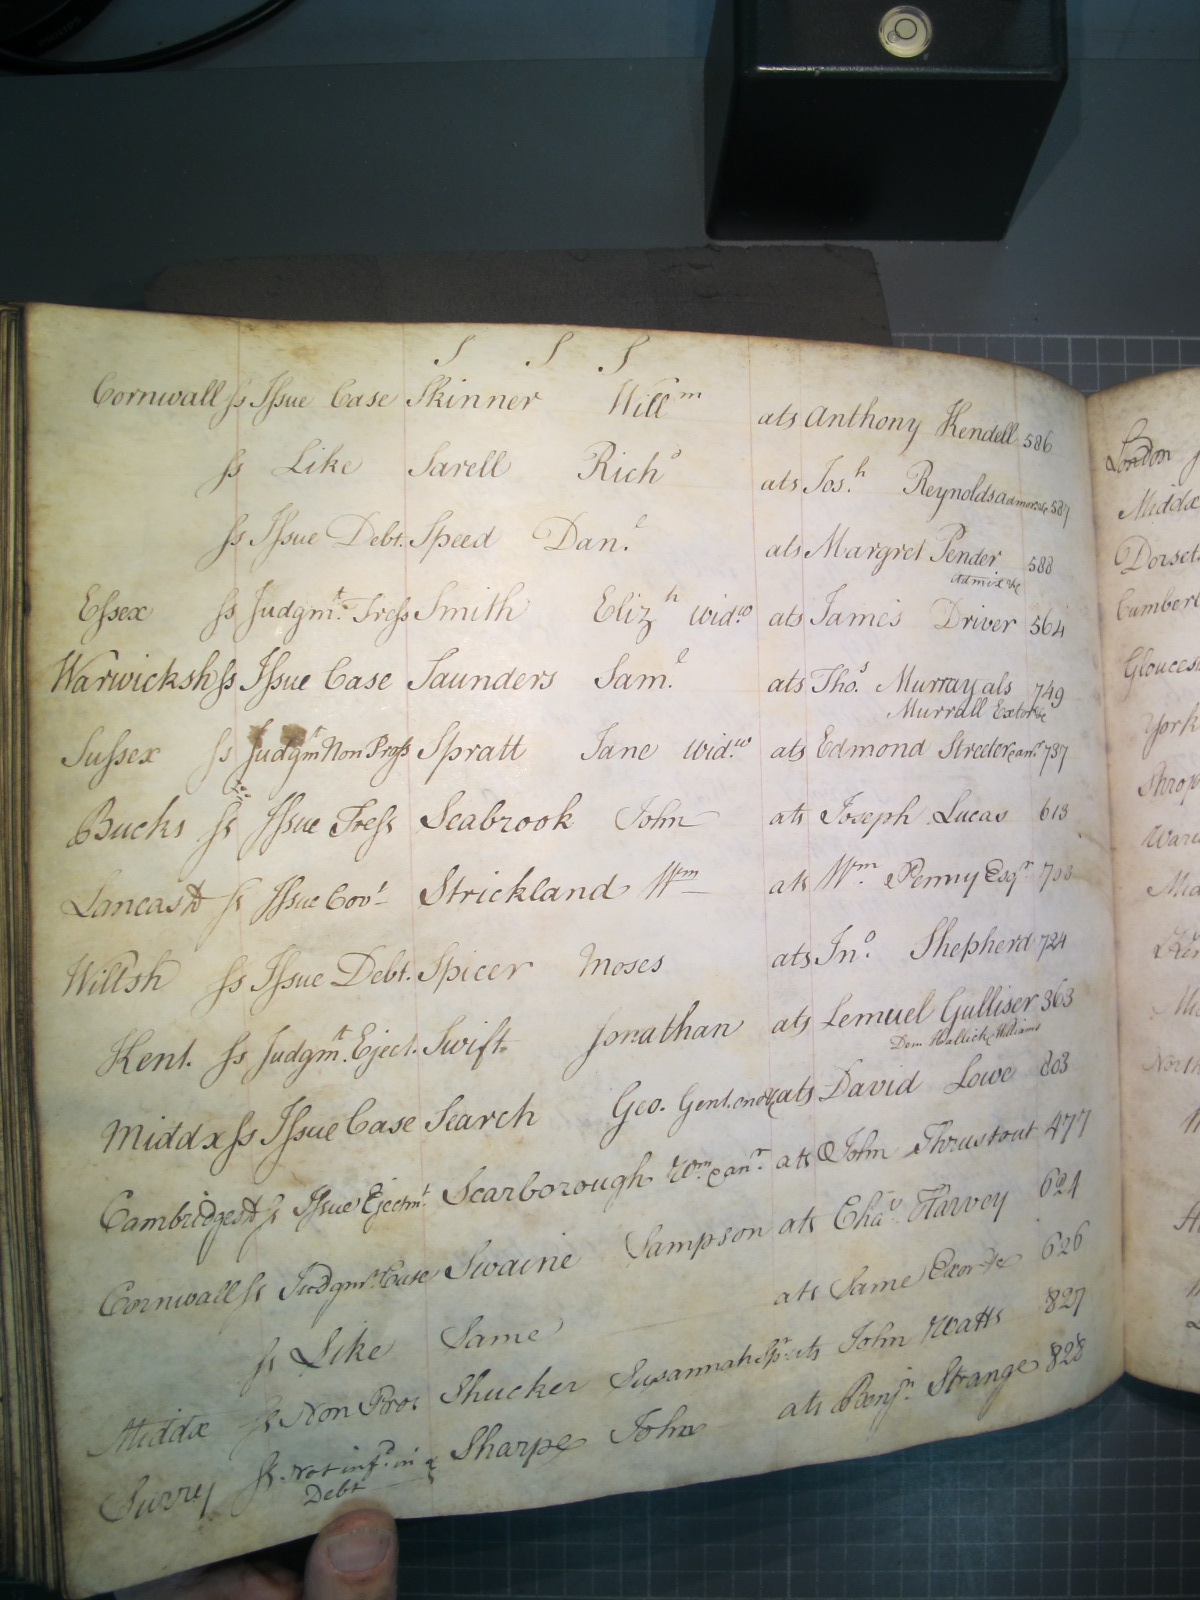 S S S
Cornwall ss Issue Case Skinner Will^m ats Anthony Kendell 586
ss Like Sarell Rich^d ats Jos.^h Reynolds admor &c 587
ss Issue Debt. Speed Dan.^l ats Margret Pender 588
admix &c
Essex ss Judgm^t. Tress Smith Eliz^h wid.^w ats James Driver 564
Warwicksh ss Issue Case Saunders Sam.^l ats Tho^s. Murray als 749
Murrall Extor &c
Sussex ss Judgm^t Non Pross Spratt Jane wid.^w ats Edmond Streeter 737
Bucks ss Issue Tress Seabrook John ats Joseph Lucas 613
Lancast^r ss Issue Cov^t Strickland W^m ats W^m. Penny Esq^r
Wiltsh ss Issue Debt. Spicer Moses ats Jn^o. Shepherd 724
Kent. ss Judgm^t. Eject. Swift Jonathan ats Lemuel Gulliser 363
Dem Hallick Williams
Middx ss Issue Case Search Geo. Gent. one &c ats David Lowe 803
Cambridgesh ss Issue Ejectm^t. Scarborough W^m. ats John Thrustout 477
Cornwall ss Judgm^t. Case Swaine Sampson ats Cha^s Harvey 624
ss Like Same ats Same Exor &c 626
Middx ss Non Pros Shucker Susannah Sp^r ats John Watts 827
Surry ss Not inf^d. in Sharpe John ats Benj^n. Strange 828
Debt
London
Middx
Dorset
Cumberl
Glouces
York
Shrop
Warw
Mid
Ken
North